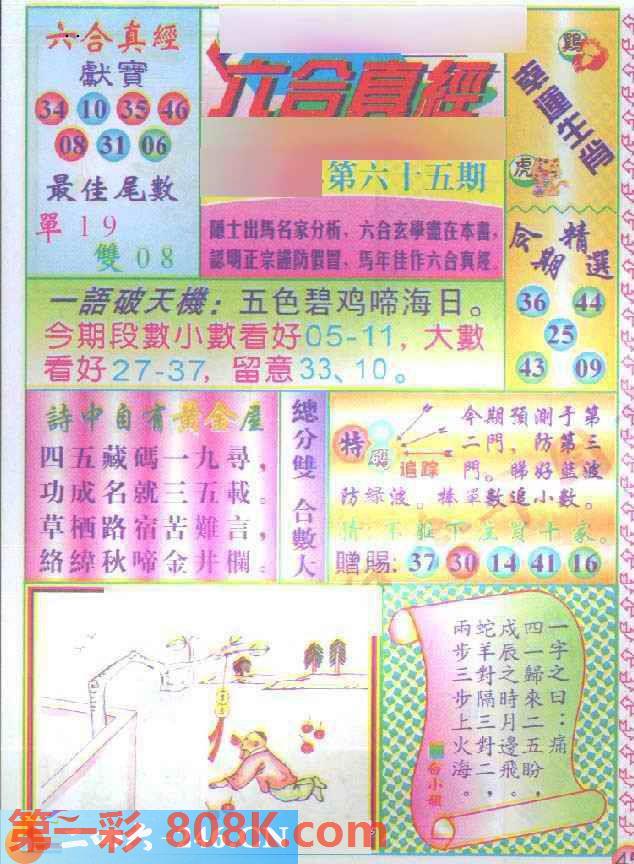 六合真經
獻寶
34 10 35 46
08 31 06
最佳尾數
單 1 9
雙 0 8
六合真經
第六十五期
隱士出馬名家分析、六合玄學盡在本書,
認明正宗謹防假冒、馬年佳作六合真經.
鷄
幸運生肖
虎
今期精選
36 44
25
43 09
一語破天機:五色碧鸡啼海日。
今期段數小數看好05-11,大數
看好27-37,留意33、10。
詩中自有黃金屋
四五藏碼一九尋,
功成名就三五載。
草栖路宿苦難言,
絡緯秋啼金井欄。
總分雙 合數大
特
追踪
今期預測于第
二門,防第三
門。睇好藍波
防绿波。捧單數追小數。
猜不脏下注買十家。
贈賜:37 30 14 41 16
一字之曰:痛
四一歸來二五盼,
戍辰之時月邊飛。
蛇羊對隔三對二,
兩步三步上火海。
第一彩 808K.com